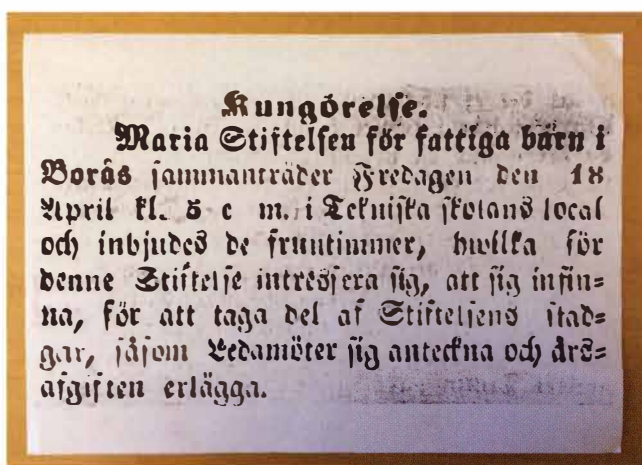 Kungörelse.
Maria Stiftelsen för fattiga barn i
Borås sammanträder Fredagen den 18
April kl. 5 e m. i Tekniska skolans local
och inbjudes de fruntimmer, hwilka för
denne Stiftelse intressera sig, att sig infin=
na, för att taga del af Stiftelsens stad=
gar, såsom Ledamöter sig anteckna och års=
afgiften erlägga.